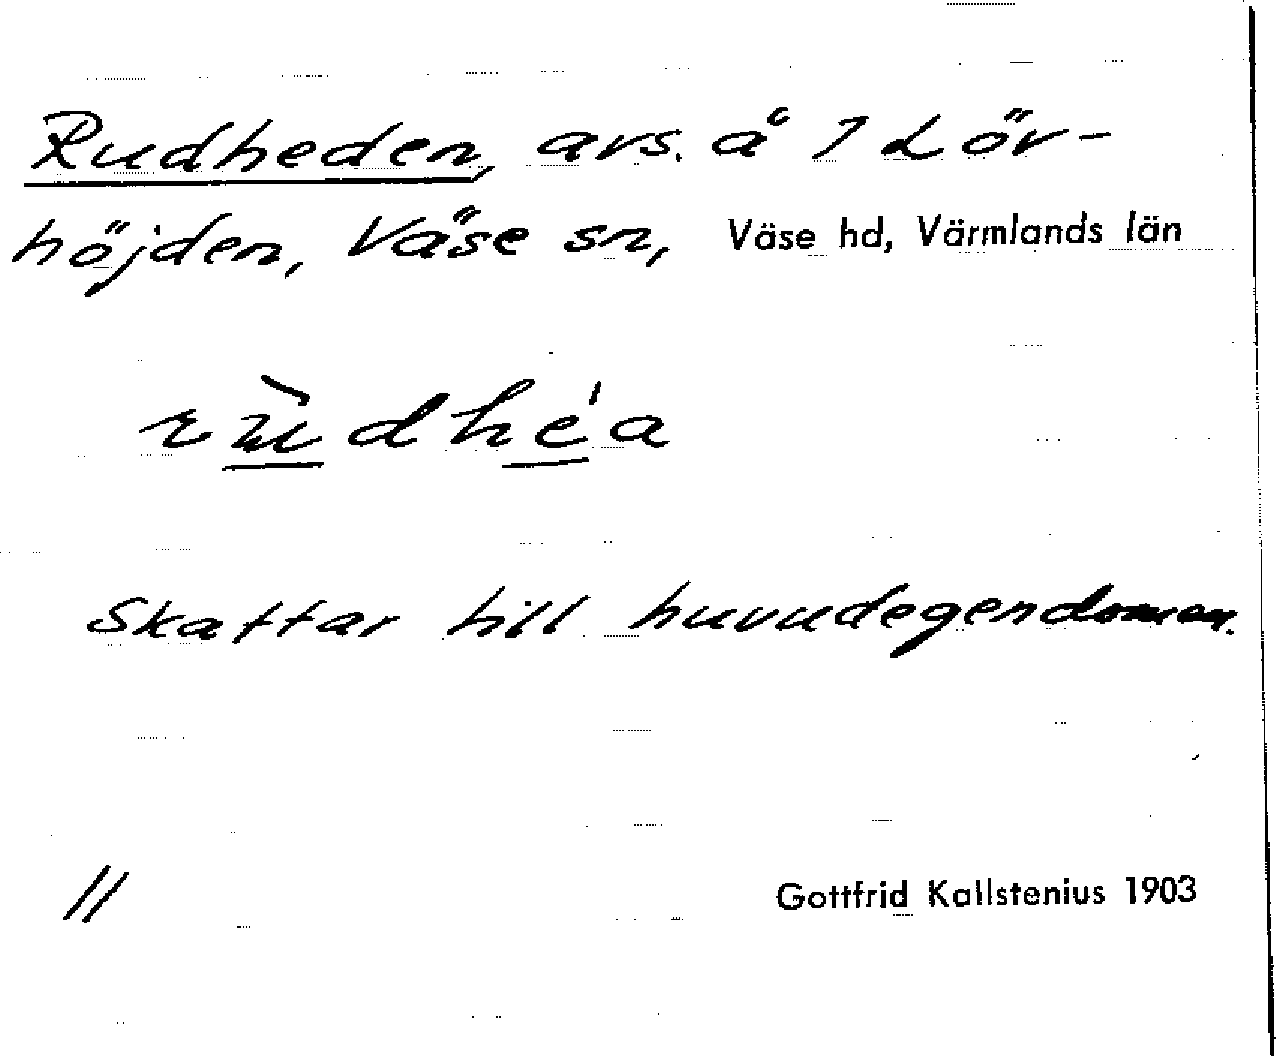 Rudheden, avs. å 1 Löv-
höjden, Väse sn, Väse hd, Värmlands län
rùdhéa
Skattar till huvudegendomen.
11 Gottfrid Kallstenius 1903